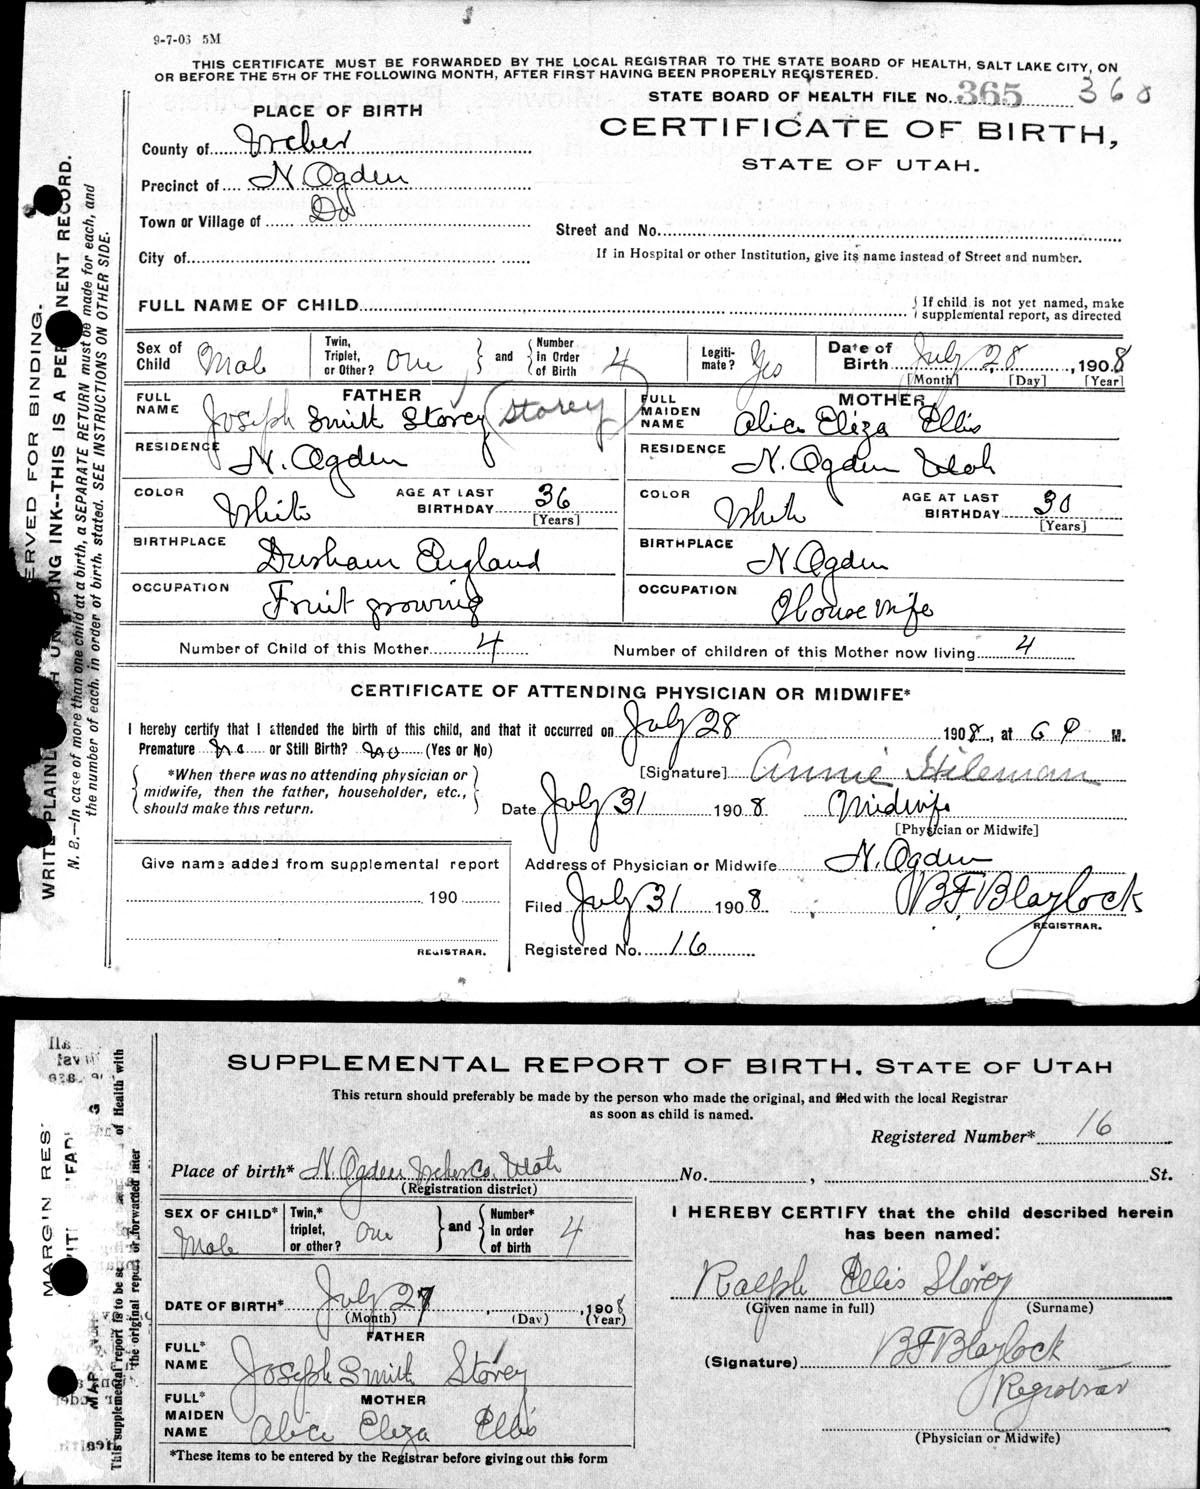 9-7-03 5M
THIS CERTIFICATE MUST BE FORWARDED BY THE LOCAL REGISTRAR TO THE STATE BOARD OF HEALTH, SALT LAKE CITY, ON
OR BEFORE THE 5TH OF THE FOLLOWING MONTH, AFTER FIRST HAVING BEEN PROPERLY REGISTERED.
STATE BOARD OF HEALTH FILE No. 365 368
PLACE OF BIRTH
CERTIFICATE OF BIRTH,
STATE OF UTAH.
County of Weber
Precinct of N. Ogden
Town or Village of Do
Street and No.
City of
If in Hospital or other Institution, give its name instead of Street and number.
FULL NAME OF CHILD
{ If child is not yet named, make
supplemental report, as directed
Sex of Child Male Twin, Triplet, or Other? One } and { Number in Order of Birth 4 Legiti-mate? Yes Date of Birth July 28, 1908
[Month] [Day] [Year]
FATHER MOTHER
FULL NAME Joseph Smith Storey (Storey) FULL MAIDEN NAME Alice Eliza Ellis
RESIDENCE N. Ogden RESIDENCE N. Ogden Utah
COLOR White AGE AT LAST BIRTHDAY 36 [Years] COLOR White AGE AT LAST BIRTHDAY 30 [Years]
BIRTHPLACE Durham England BIRTHPLACE N. Ogden
OCCUPATION Fruit growing OCCUPATION Housewife
Number of Child of this Mother 4 Number of children of this Mother now living 4
CERTIFICATE OF ATTENDING PHYSICIAN OR MIDWIFE*
I hereby certify that I attended the birth of this child, and that it occurred on July 28 1908, at 6 P M.
Premature no or Still Birth? no (Yes or No)
{ *When there was no attending physician or
midwife, then the father, householder, etc.,
should make this return. }
[Signature] Annie Hileman
Date July 31 1908 Midwife
[Physician or Midwife]
Give name added from supplemental report
190
REGISTRAR.
Address of Physician or Midwife N. Ogden
Filed July 31 1908 B F Blaylock
REGISTRAR.
Registered No. 16
N. B.—In case of more than one child at a birth, a SEPARATE RETURN must be made for each, and
the number of each, in order of birth, stated. SEE INSTRUCTIONS ON OTHER SIDE.
SUPPLEMENTAL REPORT OF BIRTH, STATE OF UTAH
This return should preferably be made by the person who made the original, and filed with the local Registrar
as soon as child is named.
Registered Number* 16
Place of birth* N. Ogden Weber Co. Utah No. , St.
(Registration district)
SEX OF CHILD* Male Twin,* triplet, or other? One } and { Number* in order of birth 4
I HEREBY CERTIFY that the child described herein
has been named:
Ralph Ellis Storey
(Given name in full) (Surname)
DATE OF BIRTH* July 27, 1908
(Month) (Day) (Year)
FATHER
FULL* NAME Joseph Smith Storey
(Signature) B F Blaylock
Registrar
(Physician or Midwife)
MOTHER
FULL* MAIDEN NAME Alice Eliza Ellis
*These items to be entered by the Registrar before giving out this form